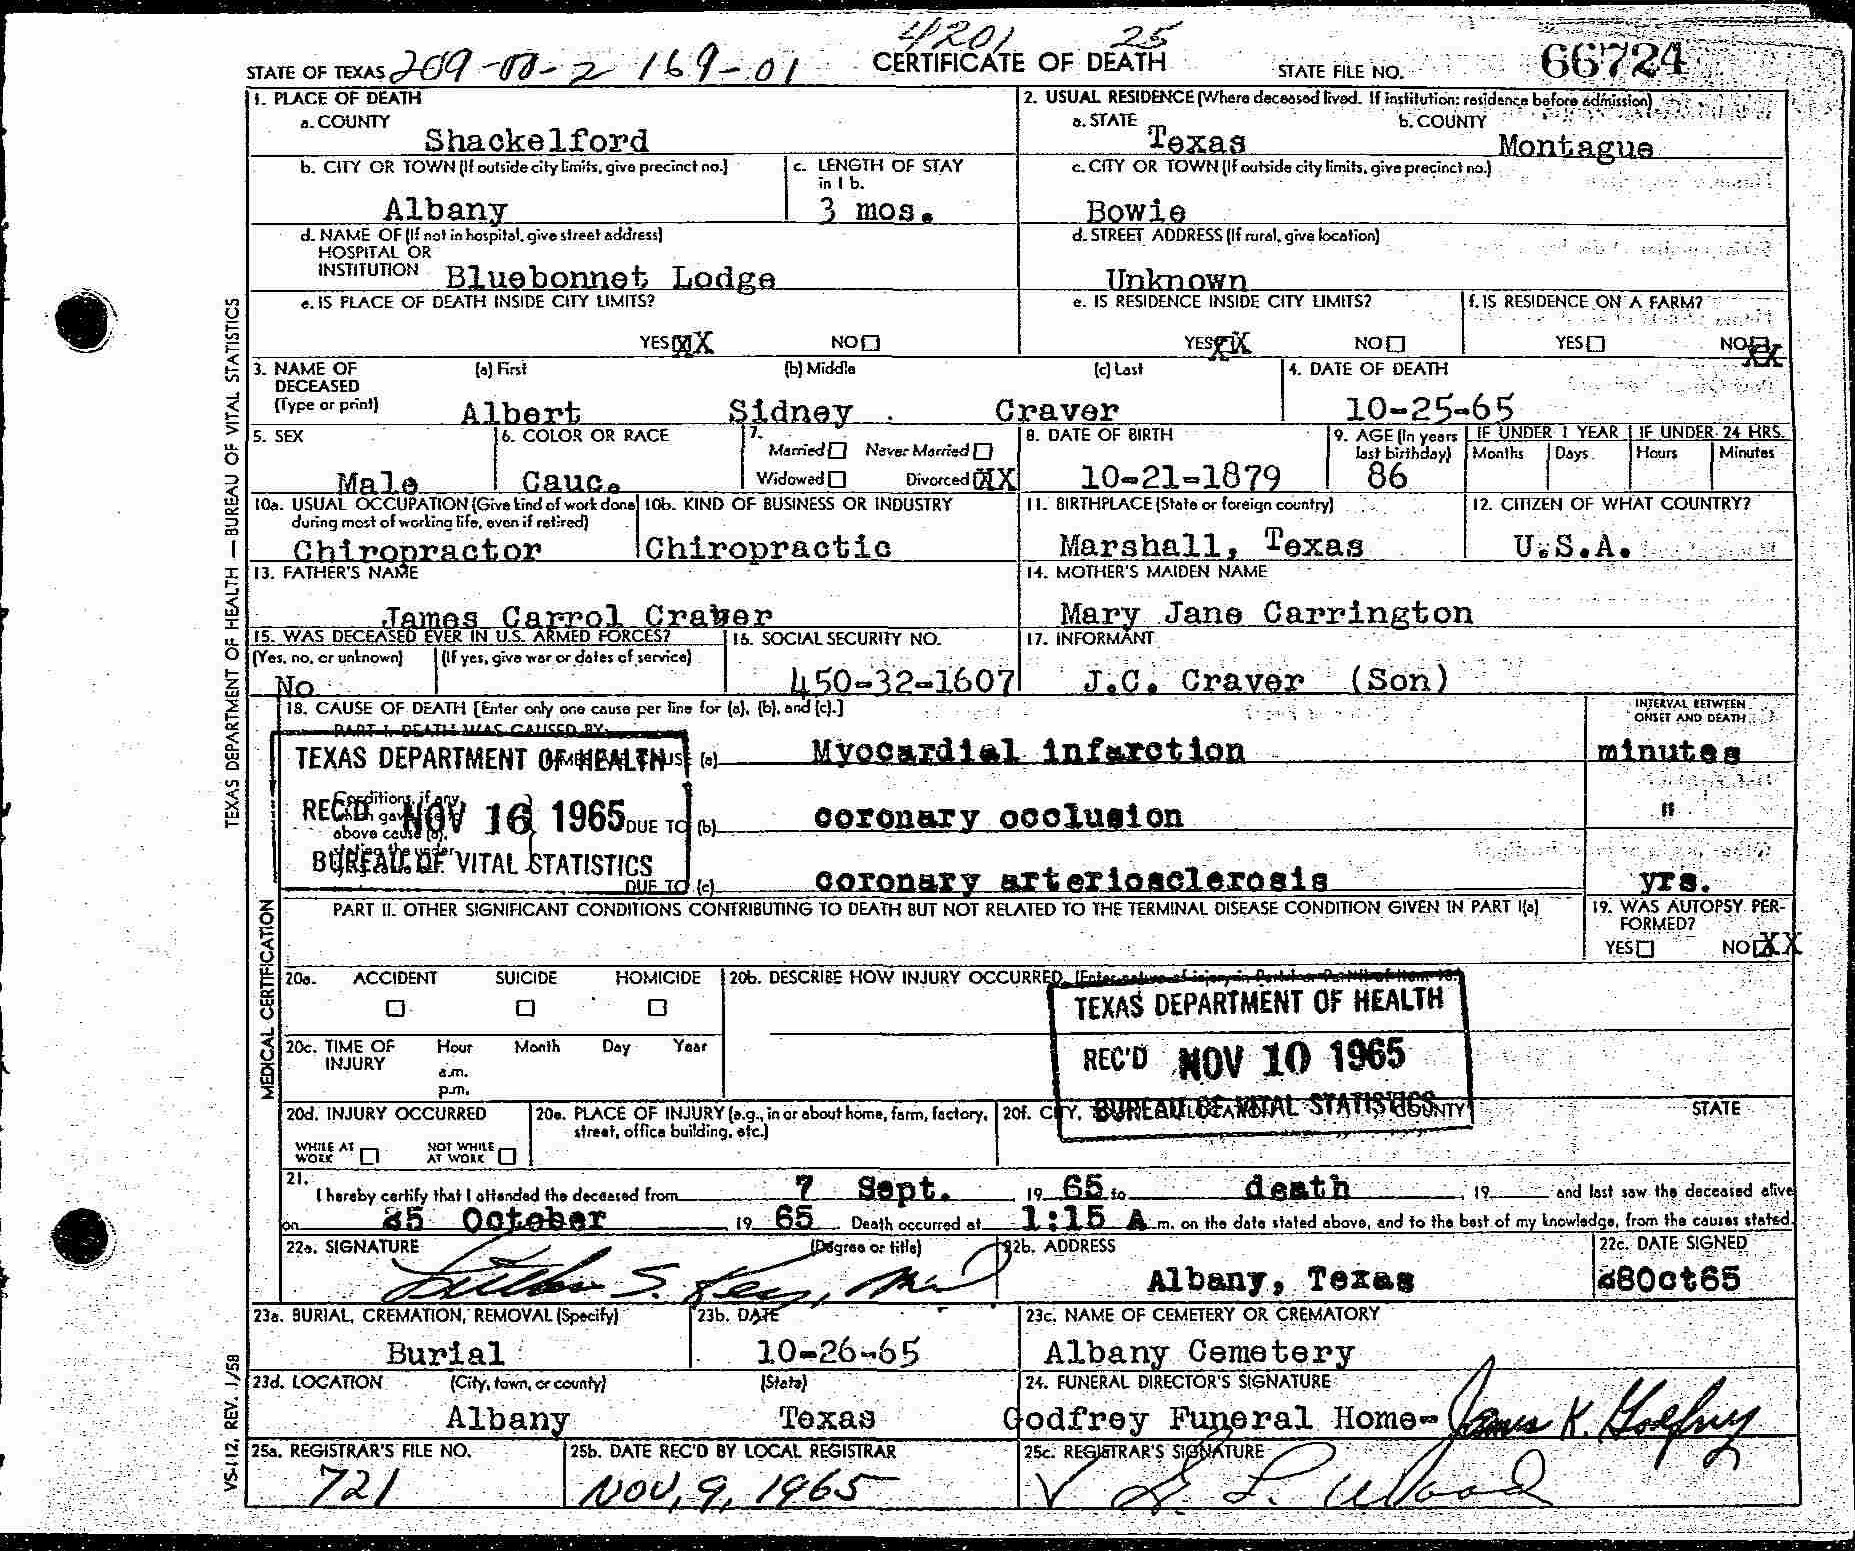 4201 25
STATE OF TEXAS 209-00-2 169-01 CERTIFICATE OF DEATH STATE FILE NO. 66724
1. PLACE OF DEATH 2. USUAL RESIDENCE (Where deceased lived. If institution: residence before admission)
a. COUNTY Shackelford a. STATE Texas b. COUNTY Montague
b. CITY OR TOWN (If outside city limits, give precinct no.) c. LENGTH OF STAY in 1 b. c. CITY OR TOWN (If outside city limits, give precinct no.)
Albany 3 mos. Bowie
d. NAME OF (If not in hospital, give street address) d. STREET ADDRESS (If rural, give location)
HOSPITAL OR
INSTITUTION Bluebonnet Lodge Unknown
e. IS PLACE OF DEATH INSIDE CITY LIMITS? e. IS RESIDENCE INSIDE CITY LIMITS? f. IS RESIDENCE ON A FARM?
YES XX NO YES XX NO YES NO XX
3. NAME OF DECEASED (Type or print) (a) First (b) Middle (c) Last 4. DATE OF DEATH
Albert Sidney Craver 10-25-65
5. SEX 6. COLOR OR RACE 7. Married Never Married 8. DATE OF BIRTH 9. AGE (In years last birthday) IF UNDER 1 YEAR IF UNDER 24 HRS.
Widowed Divorced XX Months Days Hours Minutes
Male Cauc. 10-21-1879 86
10a. USUAL OCCUPATION (Give kind of work done during most of working life, even if retired) 10b. KIND OF BUSINESS OR INDUSTRY 11. BIRTHPLACE (State or foreign country) 12. CITIZEN OF WHAT COUNTRY?
Chiropractor Chiropractic Marshall, Texas U.S.A.
13. FATHER'S NAME 14. MOTHER'S MAIDEN NAME
James Carrol Craver Mary Jane Carrington
15. WAS DECEASED EVER IN U.S. ARMED FORCES? 16. SOCIAL SECURITY NO. 17. INFORMANT
(Yes, no, or unknown) (If yes, give war or dates of service)
No 450-32-1607 J.C. Craver (Son)
18. CAUSE OF DEATH [Enter only one cause per line for (a), (b), and (c).] INTERVAL BETWEEN ONSET AND DEATH
PART I. DEATH WAS CAUSED BY:
TEXAS DEPARTMENT OF HEALTH (a) Myocardial infarction minutes
REC'D NOV 16 1965 DUE TO (b) coronary occlusion "
BUREAU OF VITAL STATISTICS
DUE TO (c) coronary arteriosclerosis yrs.
PART II. OTHER SIGNIFICANT CONDITIONS CONTRIBUTING TO DEATH BUT NOT RELATED TO THE TERMINAL DISEASE CONDITION GIVEN IN PART I(a) 19. WAS AUTOPSY PERFORMED?
YES NO XX
20a. ACCIDENT SUICIDE HOMICIDE 20b. DESCRIBE HOW INJURY OCCURRED.
TEXAS DEPARTMENT OF HEALTH
REC'D NOV 10 1965
BUREAU OF VITAL STATISTICS
20c. TIME OF INJURY Hour Month Day Year
a.m.
p.m.
20d. INJURY OCCURRED 20e. PLACE OF INJURY (e.g., in or about home, farm, factory, street, office building, etc.) 20f. CITY, COUNTY STATE
WHILE AT WORK NOT WHILE AT WORK
21. I hereby certify that I attended the deceased from 7 Sept. 19 65 to death , 19 and last saw the deceased alive
on 25 October 19 65 Death occurred at 1:15 A m. on the date stated above, and to the best of my knowledge, from the causes stated.
22a. SIGNATURE (Degree or title) 22b. ADDRESS 22c. DATE SIGNED
Albany, Texas 28Oct65
23a. BURIAL, CREMATION, REMOVAL (Specify) 23b. DATE 23c. NAME OF CEMETERY OR CREMATORY
Burial 10-26-65 Albany Cemetery
23d. LOCATION (City, town, or county) (State) 24. FUNERAL DIRECTOR'S SIGNATURE
Albany Texas Godfrey Funeral Home- James K. Godfrey
25a. REGISTRAR'S FILE NO. 25b. DATE REC'D BY LOCAL REGISTRAR 25c. REGISTRAR'S SIGNATURE
721 Nov. 9, 1965
TEXAS DEPARTMENT OF HEALTH — BUREAU OF VITAL STATISTICS
MEDICAL CERTIFICATION
VS-112, REV. 1/58